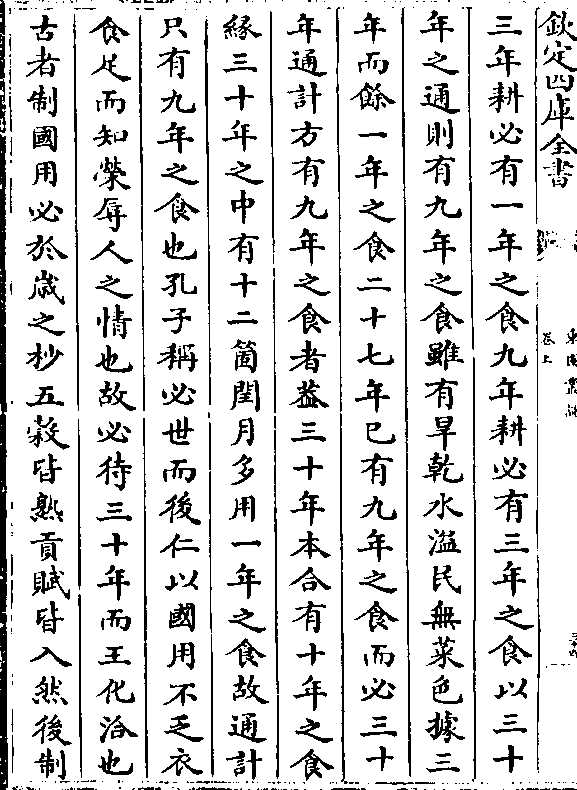 欽定四庫全書
卷上
三年耕必有一年之食九年耕必有三年之食以三十
年之通則有九年之食雖有旱乾水溢民無菜色據三
年而餘一年之食二十七年已有九年之食而必三十
年通計方有九年之食者葢三十年本合有十年之食
緣三十年之中有十二箇閏月多用一年之食故通計
只有九年之食也孔子稱必世而後仁以國用不乏衣
食足而知榮辱人之情也故必待三十年而王化洽也
古者制國用必於嵗之杪五穀皆熟貢賦皆入然後制